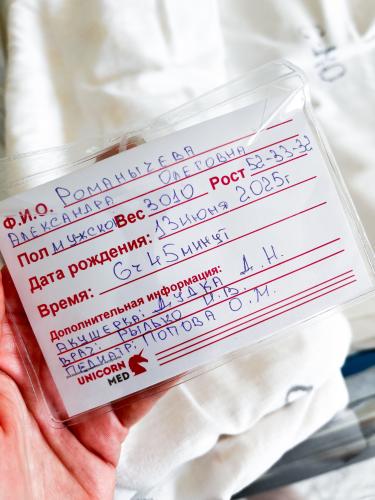 Ф.И.О. РОМАНЫЧЕВА
АЛЕКСАНДРА ОЛЕГОВНА
Пол мужско Вес 3010 Рост 52-33-32
Дата рождения: 13 июня 2025г
Время: 6ч 45 минут
Дополнительная информация:
АКУШЕРКА: ДУДКА Д.Н.
ВРАЧ: РЫЛЬКО И.В.
ПЕДИАТР: ПОПОВА О.М.
UNICORN
MED